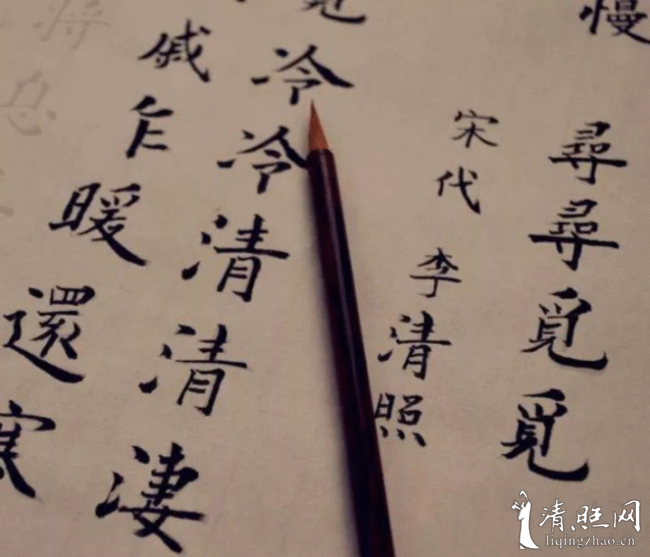 慢 尋尋覓覓
宋代 李清照
冷冷清清淒
戚乍暖還寒
清旺网
liqingzhao.cn